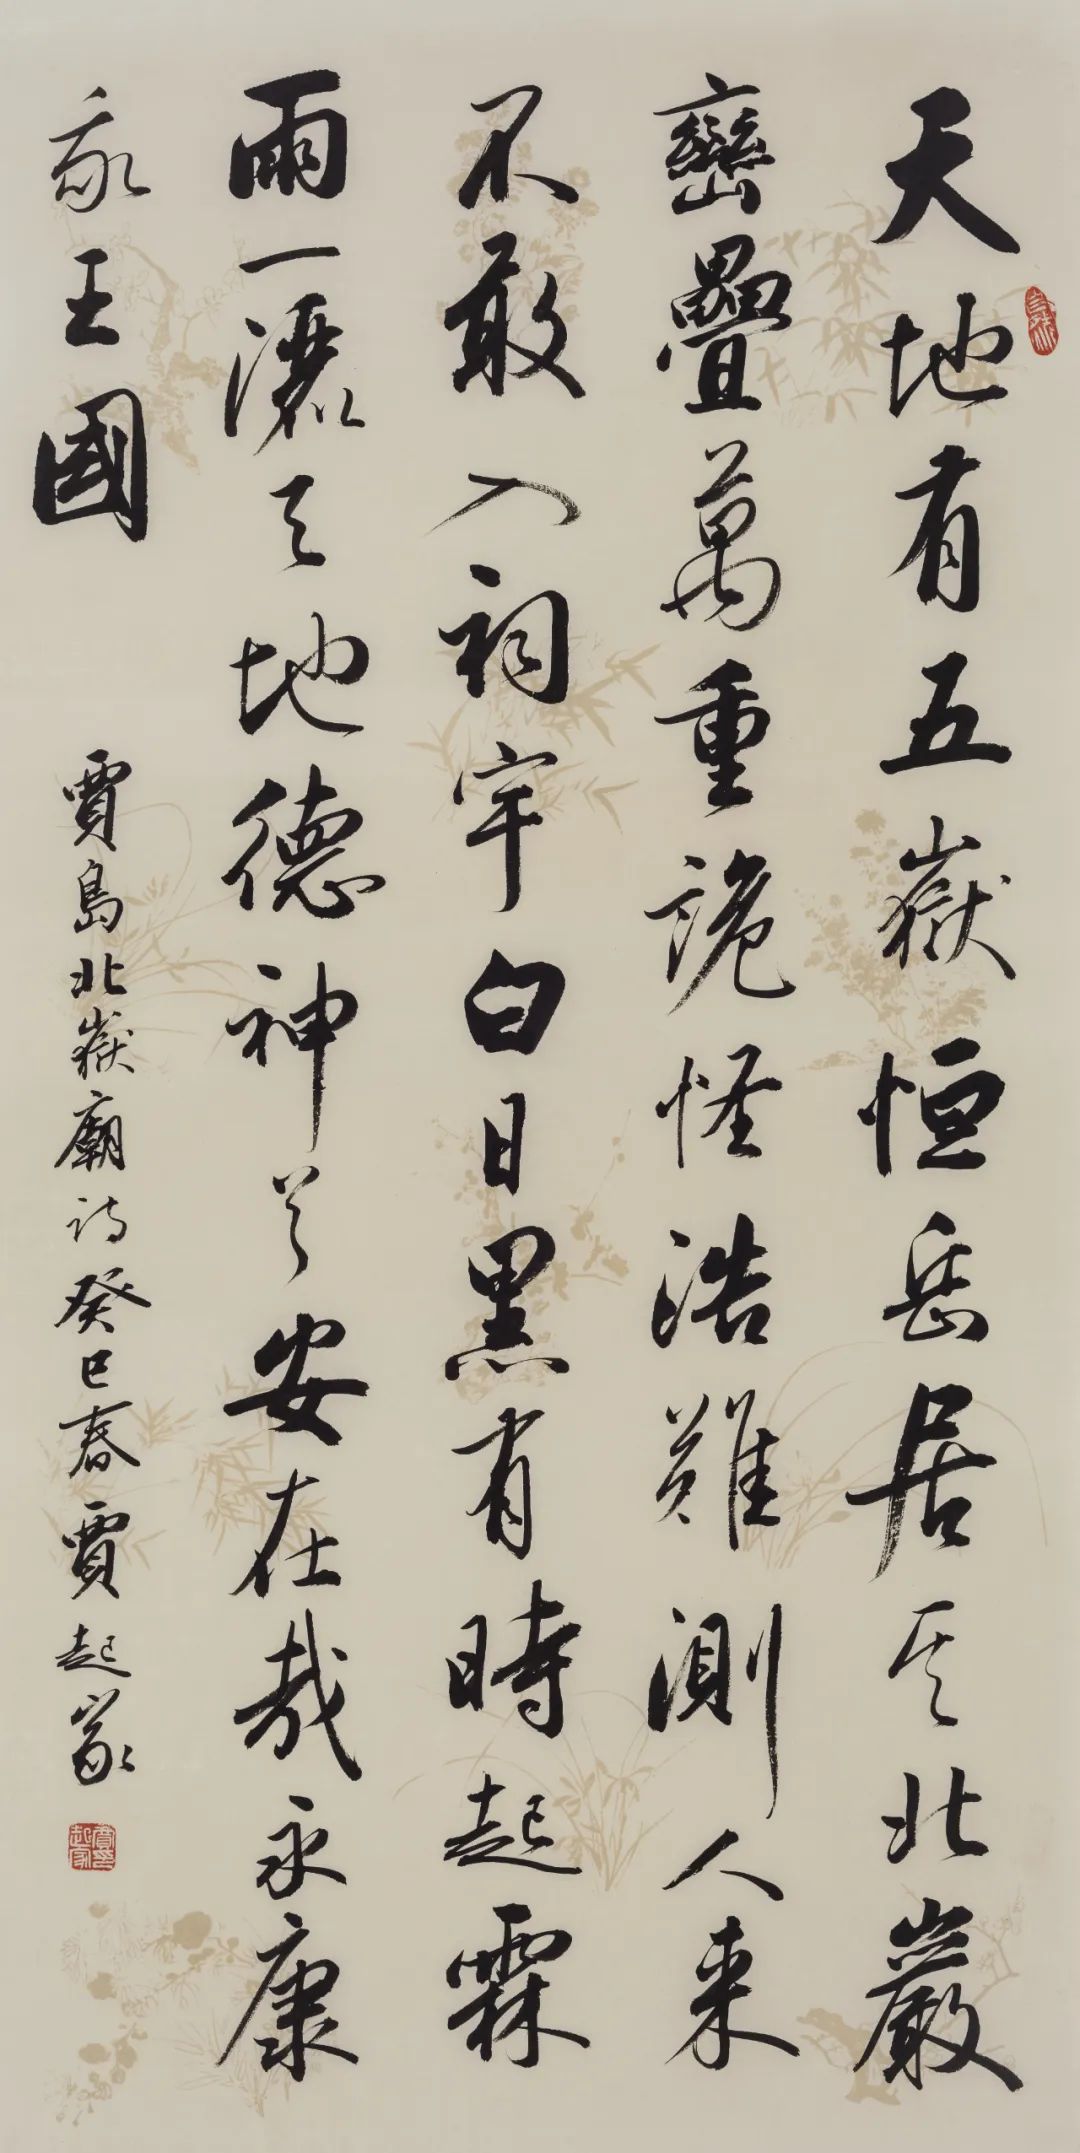 天地有五嶽恒岳居其北巖
巒疊萬重詭怪浩難測人来
不敢入祠宇白日黑有時起霖
雨一灑天地德神兮安在哉永康
我王國 賈島北嶽廟詩癸巳春賈起家